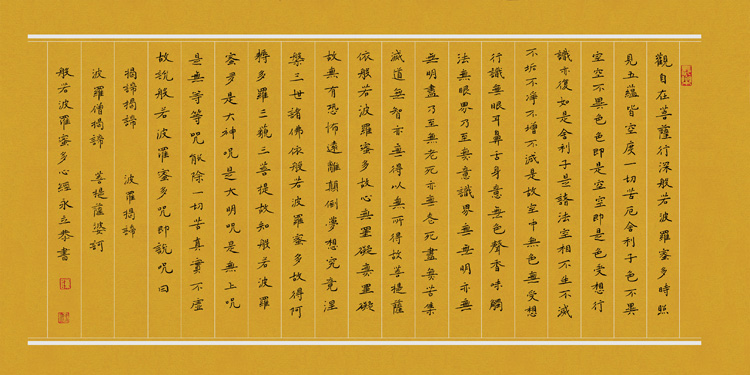 觀自在菩薩行深般若波羅蜜多時照
見五蘊皆空度一切苦厄舍利子色不異
空空不異色色即是空空即是色受想行
識亦復如是舍利子是諸法空相不生不滅
不垢不淨不增不減是故空中無色無受想
行識無眼耳鼻舌身意無色聲香味觸
法無眼界乃至無意識界無無明亦無
無明盡乃至無老死亦無老死盡無苦集
滅道無智亦無得以無所得故菩提薩
依般若波羅蜜多故心無罣礙無罣礙
故無有恐怖遠離顛倒夢想究竟涅
槃三世諸佛依般若波羅蜜多故得阿
耨多羅三藐三菩提故知般若波羅
蜜多是大神咒是大明咒是無上咒
是無等等咒能除一切苦真實不虛
故說般若波羅蜜多咒即說咒曰
揭諦揭諦 波羅揭諦
波羅僧揭諦 菩提薩婆訶
般若波羅蜜多心經永立恭書